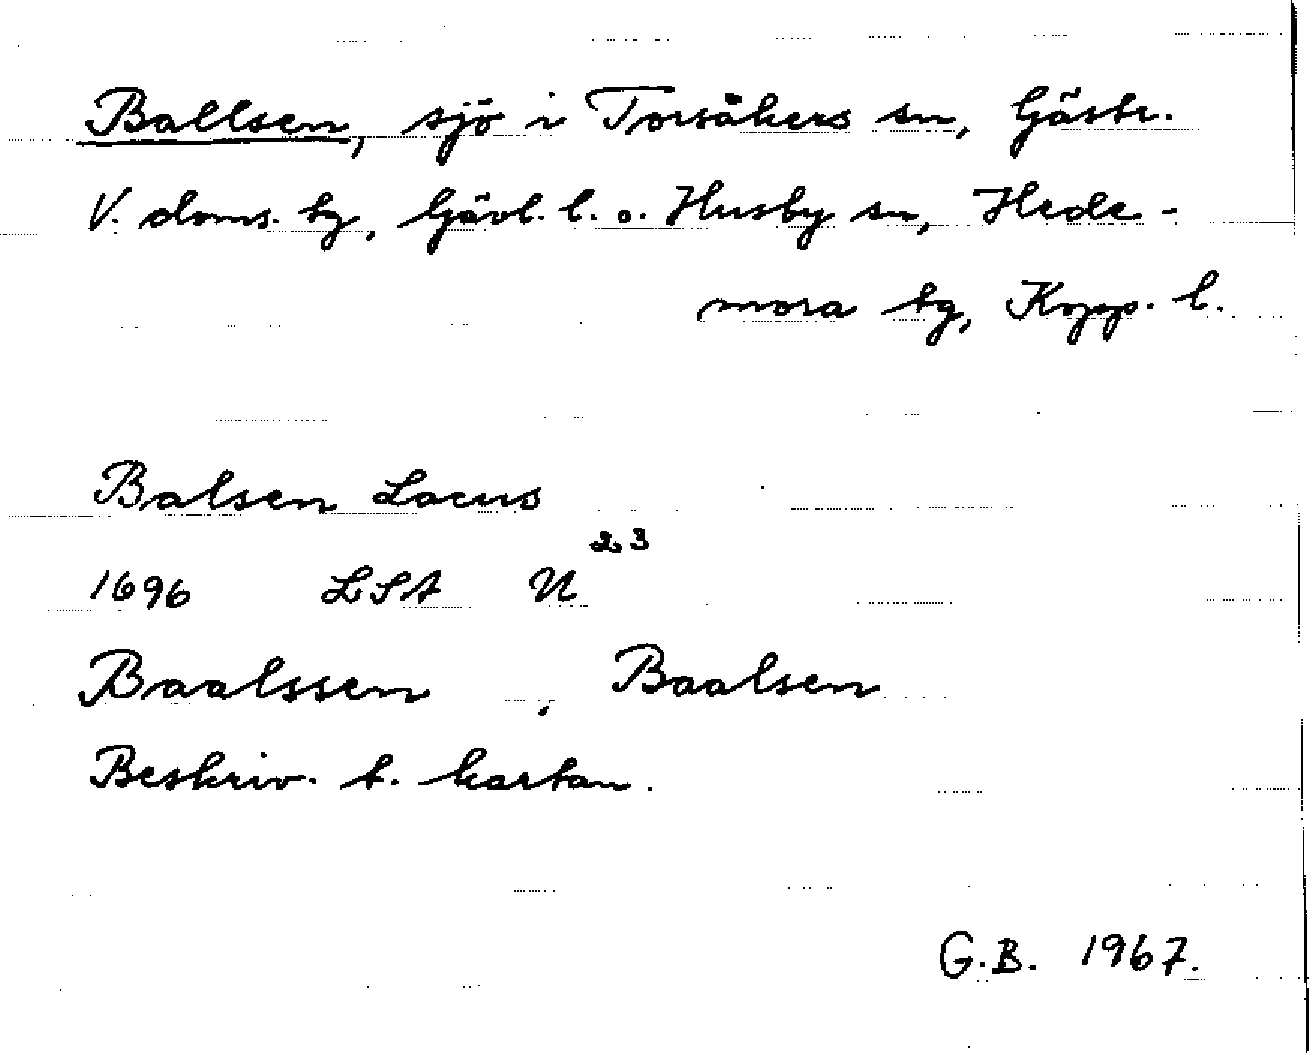 Ballsen, sjö i Torsåkers sn, Gästr.
V. doms. tg, Gävl. l. o. Husby sn, Hede-
mora tg, Kopp. l.
Balsen Lacus
1696 LSA U 23
Baalssen, Baalsen
Beskriv. t. kartan.
G.B. 1967.